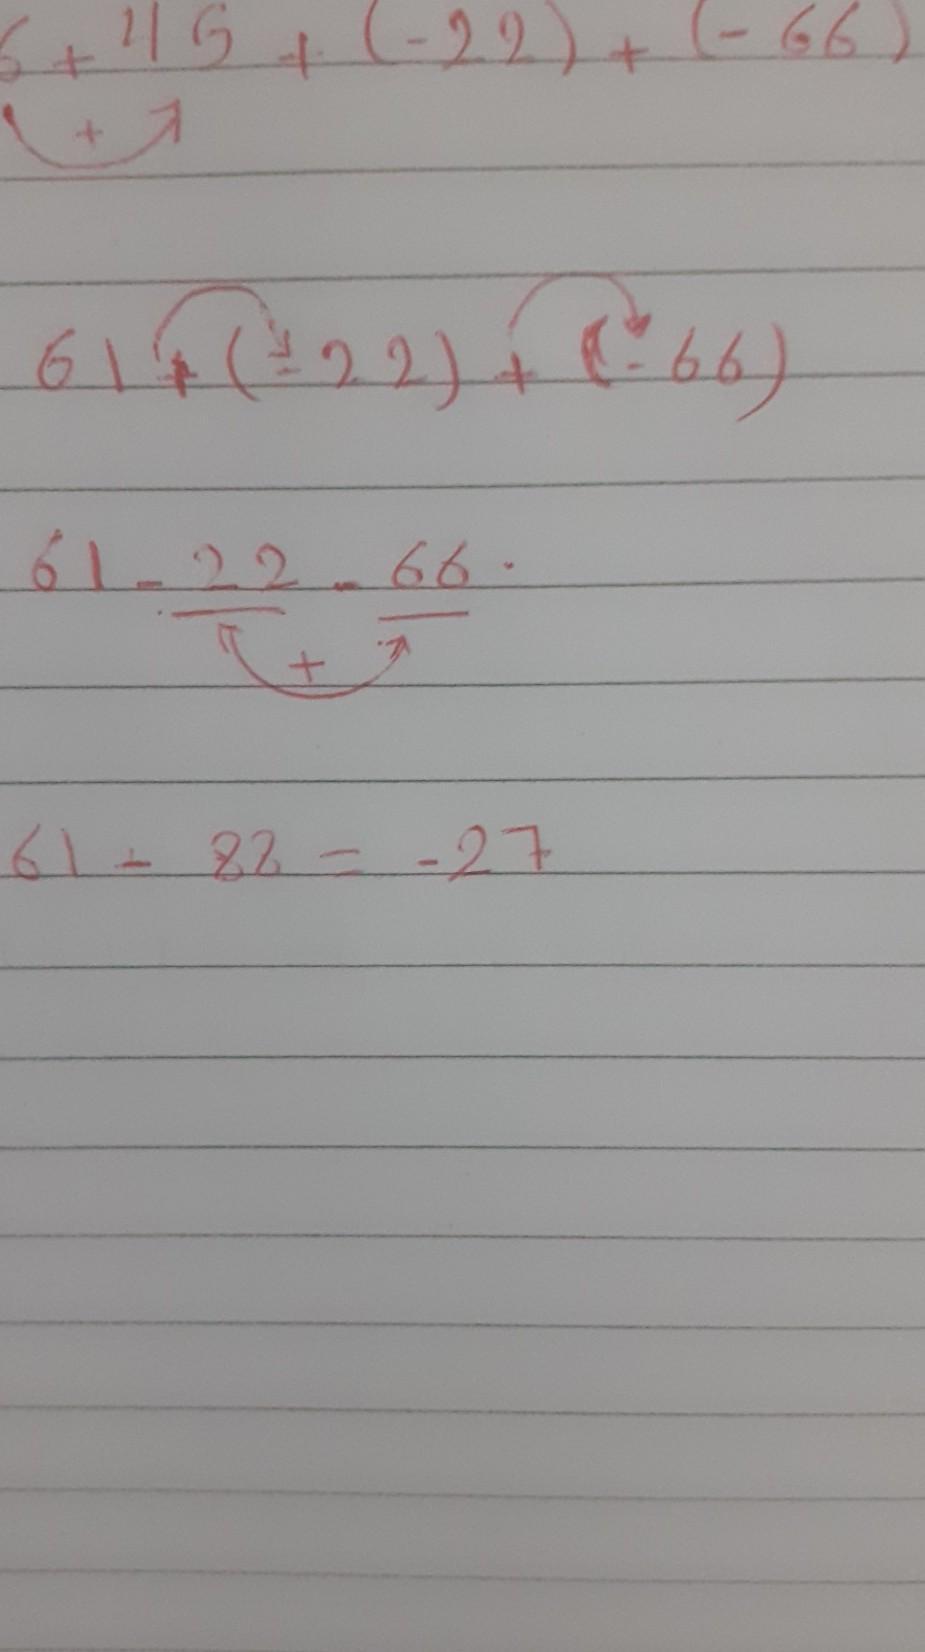 6 + 45 + (-22) + (-66)
+
61 + (-22) + (-66)
61 - 22 - 66.
+
61 - 88 = -27